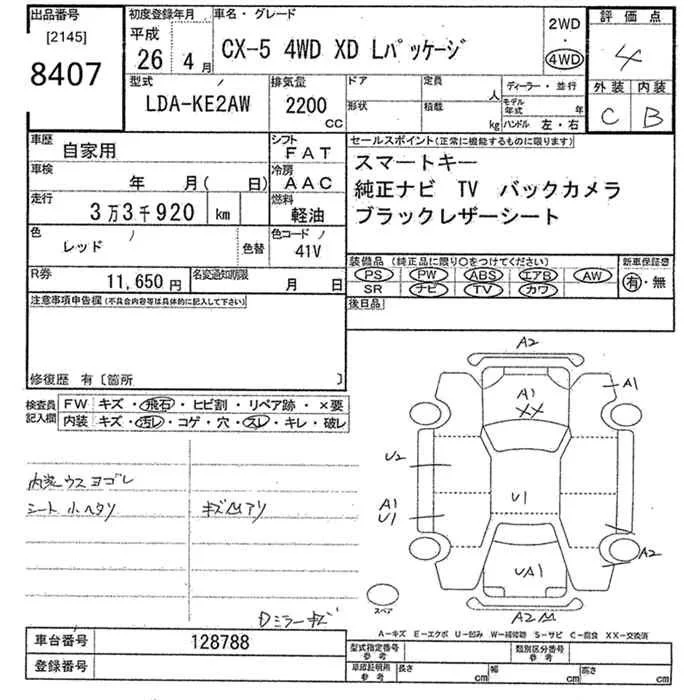 出品番号
[2145]
8407
初度登録年月
平成
26 4月
車名・グレード
CX-5 4WD XD Lパッケージ
2WD
・
4WD
評価点
4
外装 内装
C B
型式
LDA-KE2AW
排気量
2200
CC
ドア
形状
定員
人
積載
kg
ディーラー・並行
モデル年式 年
ハンドル 左・右
車歴
自家用
シフト
FAT
車検
年 月( 日)
冷房
AAC
走行
3万3千920 km
燃料
軽油
色
レッド
色替
色コード
41V
R券
11,650円
名変通知期限
月 日
セールスポイント(正常に機能するものに限ります)
スマートキー
純正ナビ TV バックカメラ
ブラックレザーシート
装備品 (純正品に限り○をつけてください)
PS PW ABS エアB AW
SR ナビ TV カワ
新車保証書
有・無
後日品
注意事項申告欄(不具合内容等は具体的に記入して下さい)
修復歴 有〔箇所 〕
検査員記入欄
FW キズ・飛石・ヒビ割・リペア跡・×要
内装 キズ・汚レ・コゲ・穴・スレ・キレ・破レ
内装ウスヨゴレ
シート小ヘタリ
キズMアリ
Dミラーキズ
A2
A1
A1
XX
U2
U1
A1
U1
A2
UA1
A2M
スペア
A-キズ E-エクボ U-凹み W-補修跡 S-サビ C-腐食 XX-交換済
車台番号
128788
登録番号
型式指定番号
参考
類別区分番号
参考
車庫証明用
参考
長さ cm
幅 cm
高さ cm